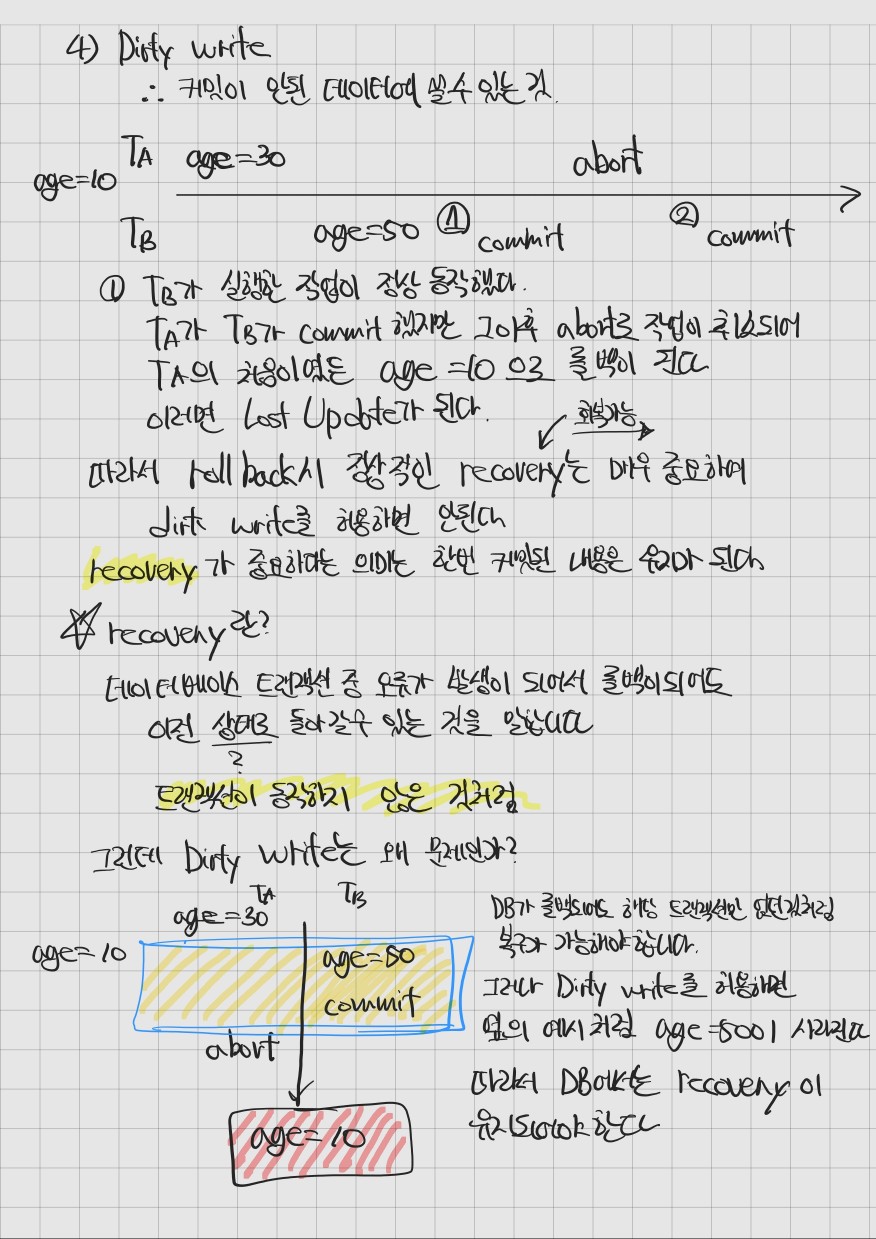 4) Dirty write
∴ 커밋이 안된 데이터에 쓸수 있는것.
TA age=30 abort
age=10
TB age=50 ① commit ② commit
① TB가 실행한 작업이 정상 동작했다.
TA가 TB가 commit 했지만 그이후 abort로 작업이 취소되어
TA의 처음이였든 age =10 으로 롤백이 된다
이러면 Lost Update가 된다.
회복가능
따라서 roll back시 정상적인 recovery는 매우 중요하며
dirty write를 허용하면 안된다
recovery가 중요하다는 의미는 한번 커밋된 내용은 유지가 된다
☆ recovery란?
데이터베이스 트랜잭션 중 오류가 발생이 되어서 롤백이되어도
이전 상태로 돌아갈수 있는 것을 말합니다
?
트랜잭션이 동작하지 않은 것처럼
그런데 Dirty write는 왜 문제인가?
TA TB
age=30
age=10
age=50
commit
abort
age=10
DB가 롤백되어도 해당 트랜잭션만 없던것처럼
복구가 가능해야합니다.
그러나 Dirty write를 허용하면
옆의 예시처럼 age=50이 사라진다
따라서 DB에서는 recovery 이
유지되어야 한다